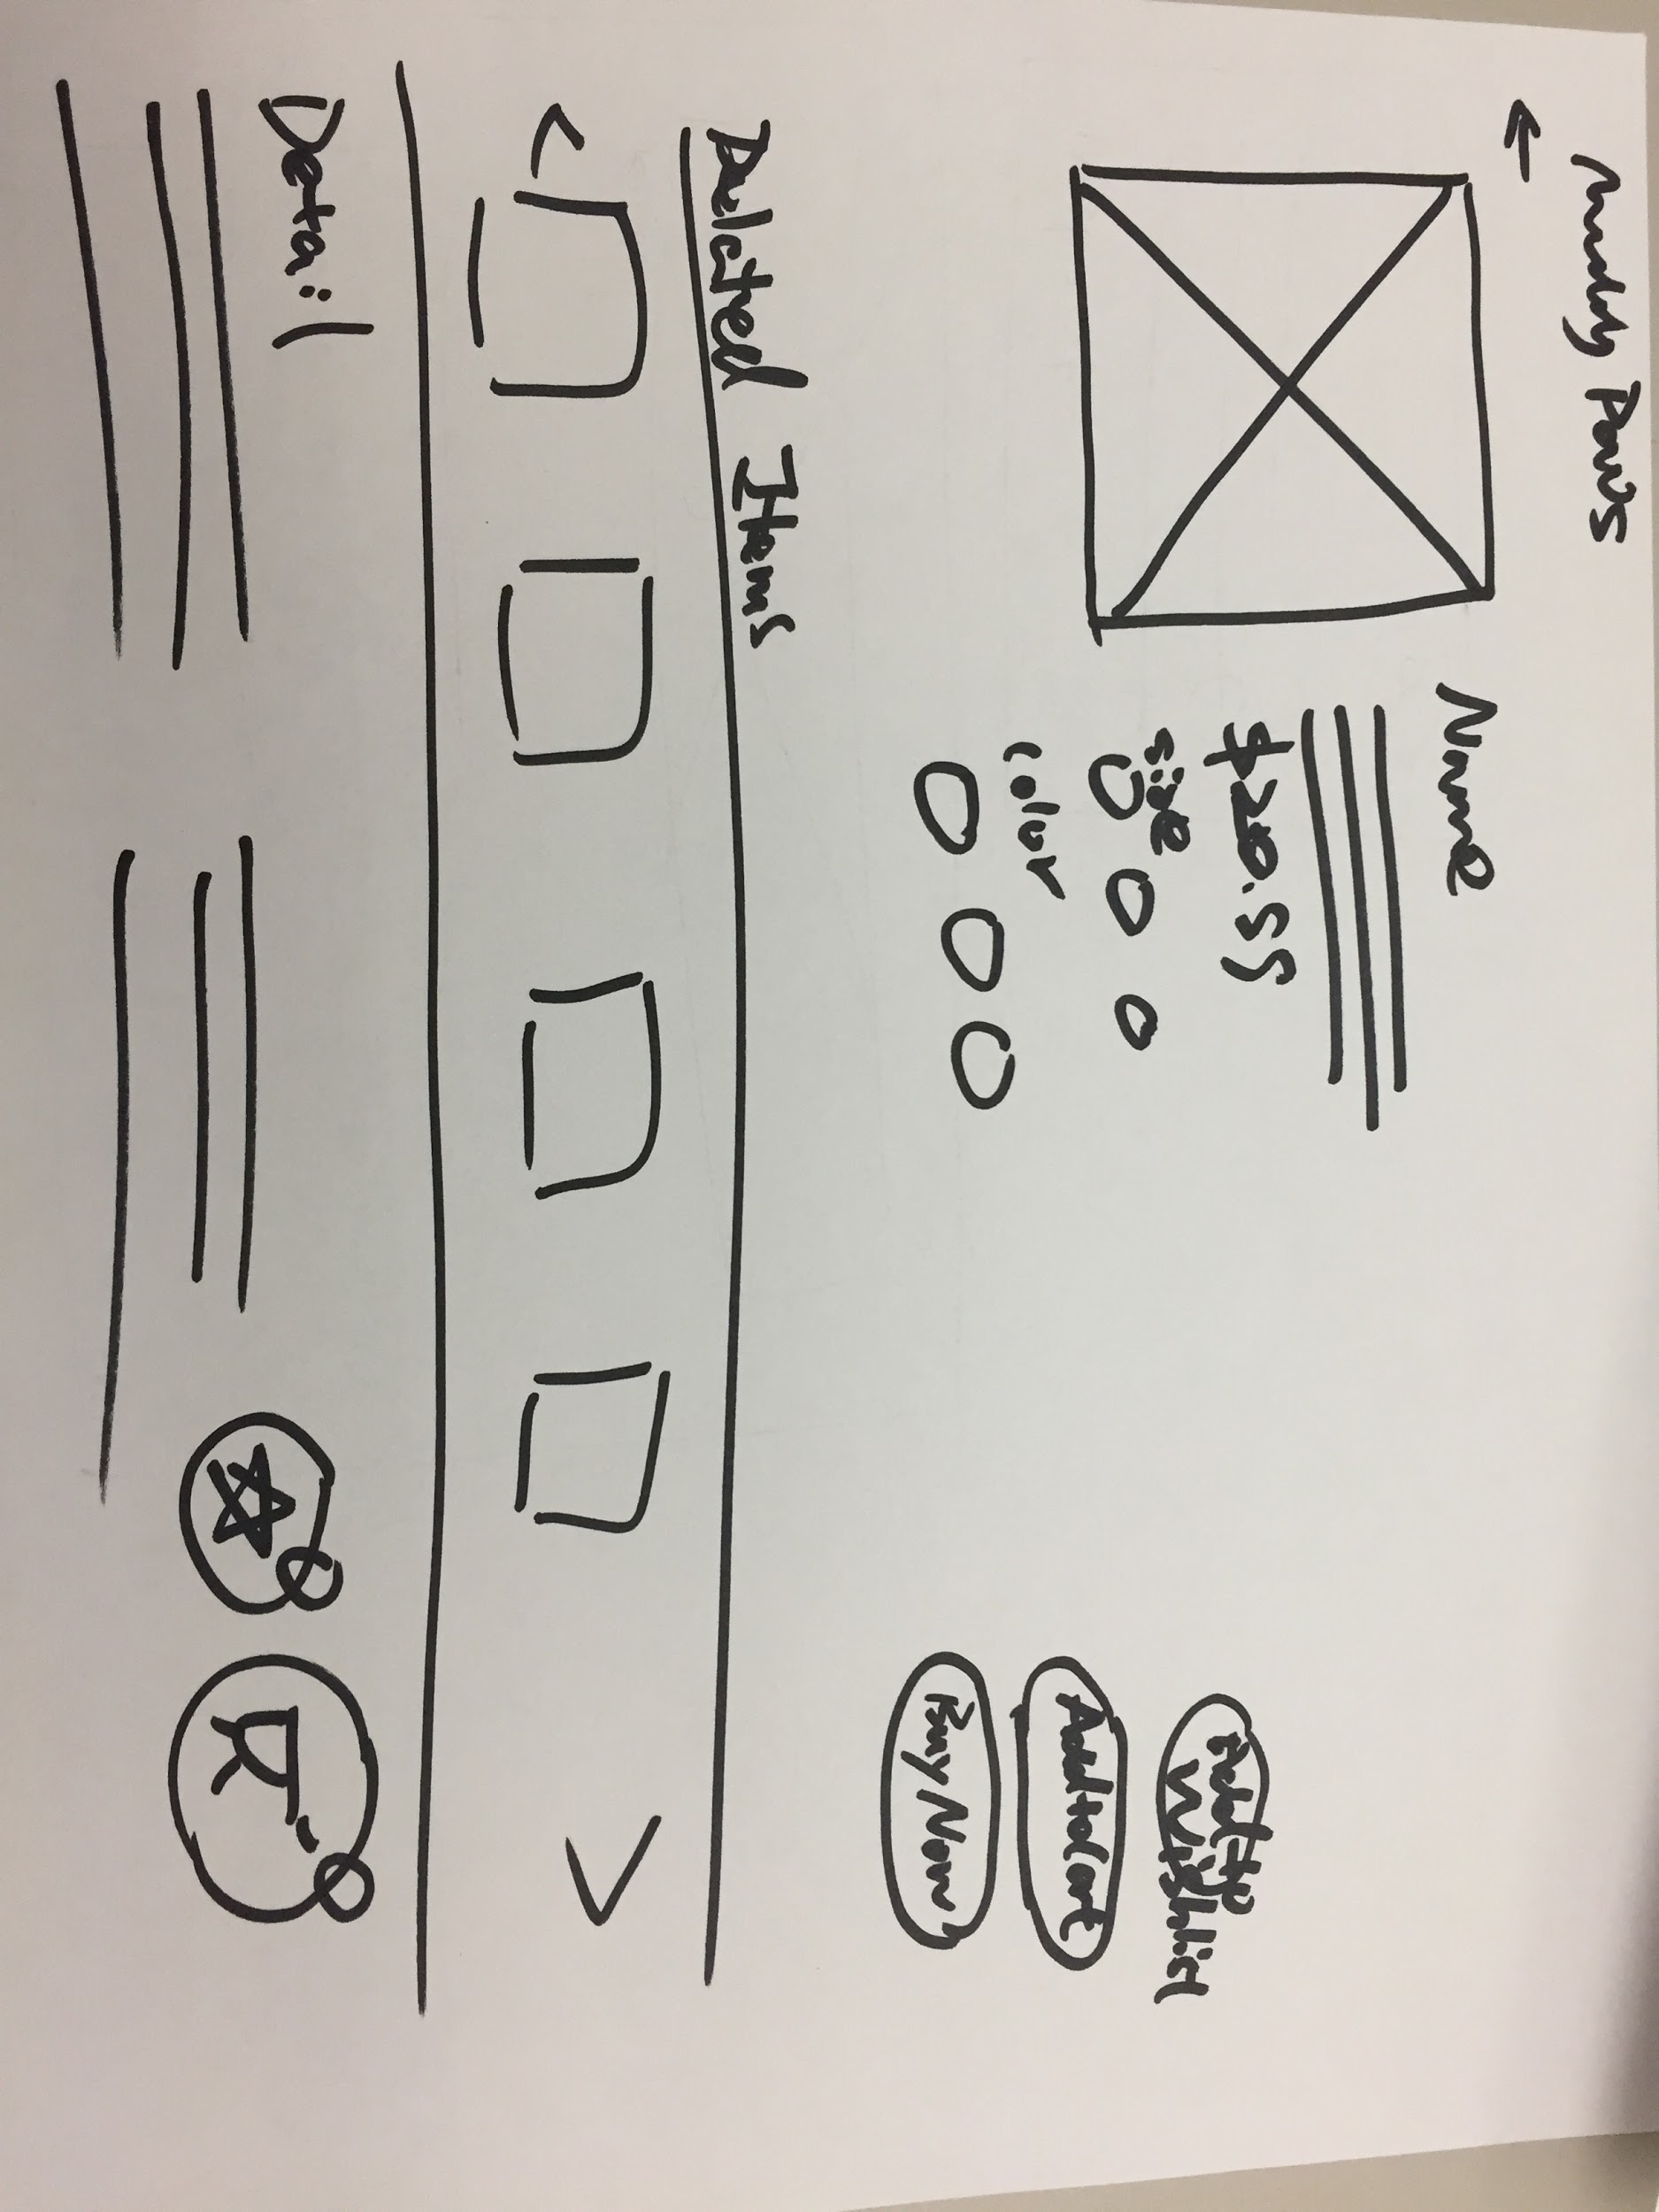 Muddy Paws
←
Name
$20.55
size
color
Add to
Wishlist
Add to Cart
Buy Now
Related Items
< >
Detail